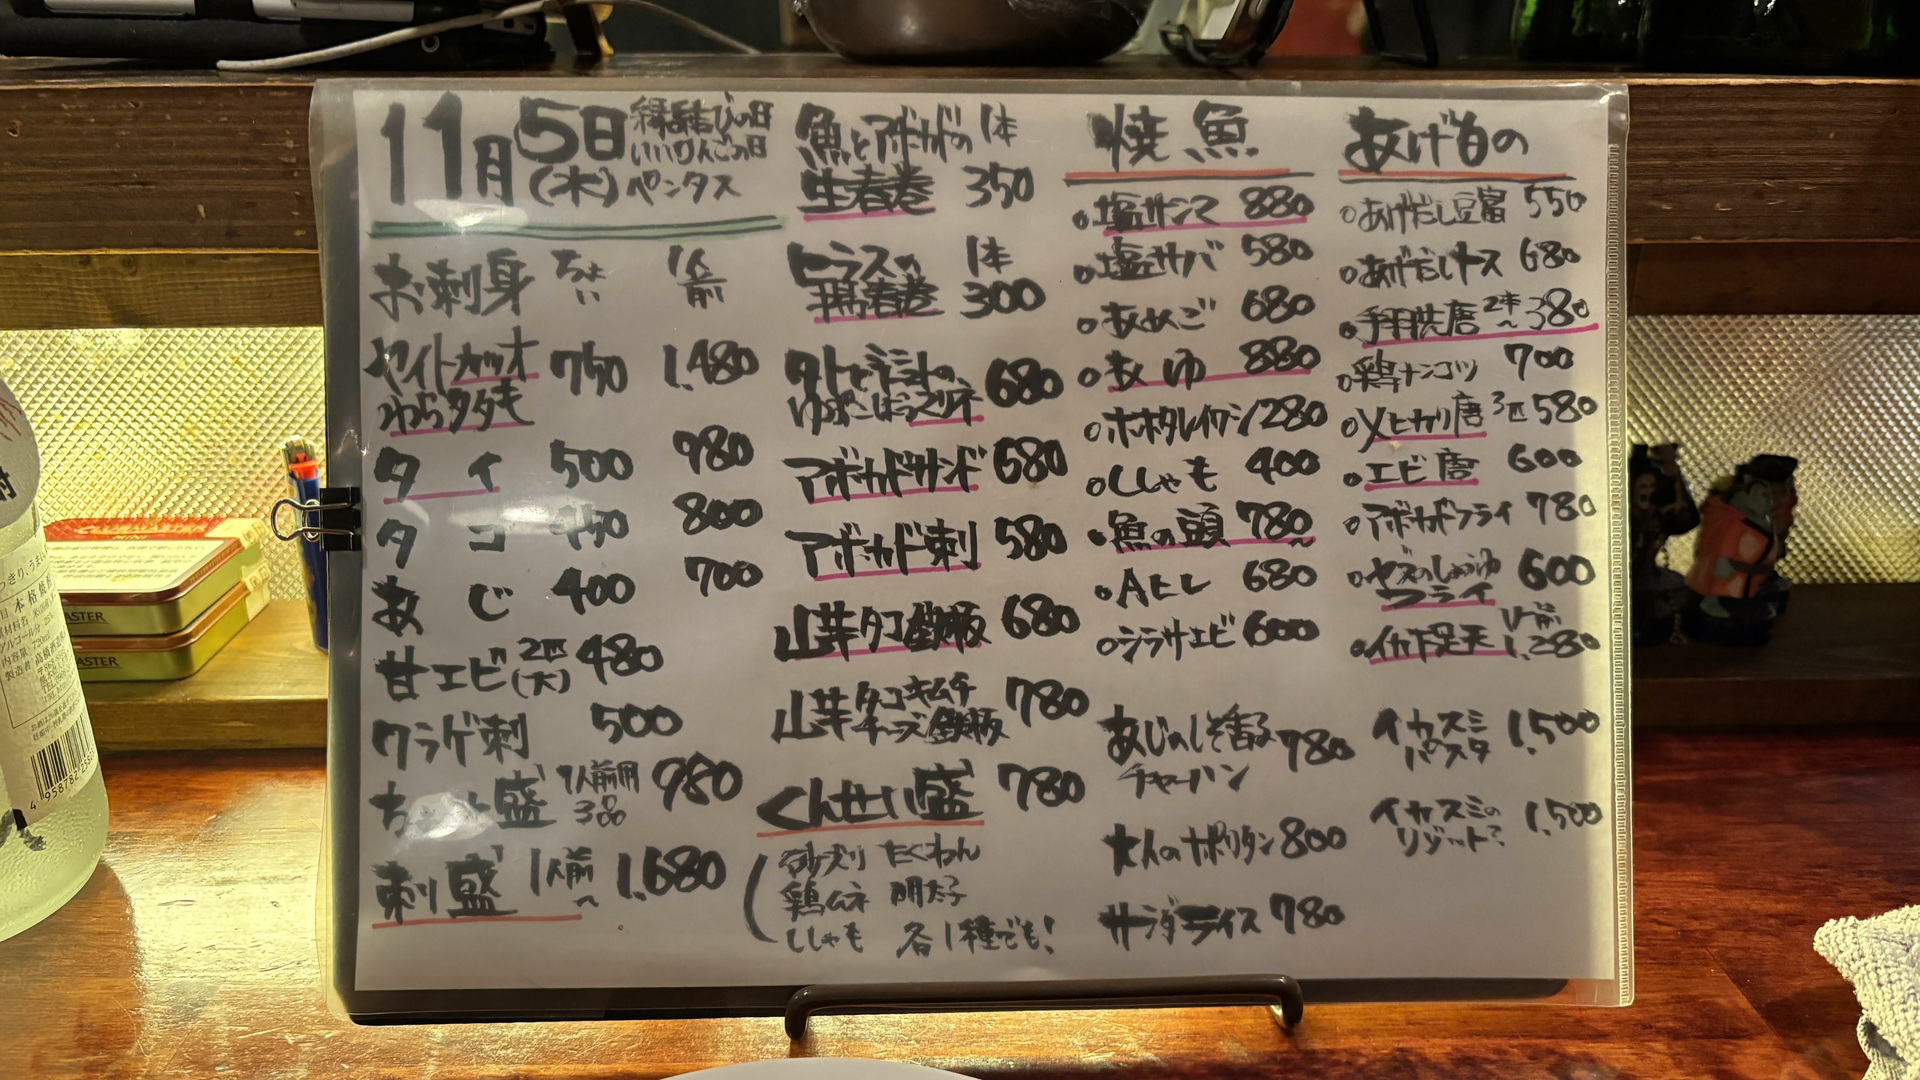 11月5日
(木)
縁結びの日
いいりんごの日
ペンタス
お刺身 ちょい 1人前
ヤイトカツオ
のわらタタキ 750 1,480
タイ 500 980
タコ 450 800
あじ 400 700
甘エビ 2匹(大) 480
クラゲ刺 500
盛 1人前用 3品 980
刺盛 1人前〜 1,680
魚とアボカドの
生春巻 1本 350
シラスの
春巻 1本 300
ゆずこしょうマリネ 680
アボカドサンド 680
アボカド刺 580
山芋タコ鉄板 680
山芋タコキムチ
チーズ鉄板 780
くんせい盛 780
砂ズリ たくわん
鶏ムネ 明太子
ししゃも 各1種でも!
焼魚
塩サンマ 880
塩サバ 580
あめご 680
あゆ 880
ホホタレイワシ 280
ししゃも 400
魚の頭 780〜
Aヒレ 680
シラサエビ 600
あじのしそ香る
チャーハン 780
大人のナポリタン 800
サラダライス 780
あげもの
あげだし豆富 550
あげだしナス 680
手羽唐 2本〜 380
鶏ナンコツ 700
メヒカリ唐 3匹 580
エビ唐 600
アボカドフライ 780
フライ 600
イカ下足天 1,280
イカスミ
パスタ 1,500
イカスミの
リゾット 1,500
MASTER
MASTER
日本格焼
4 958782